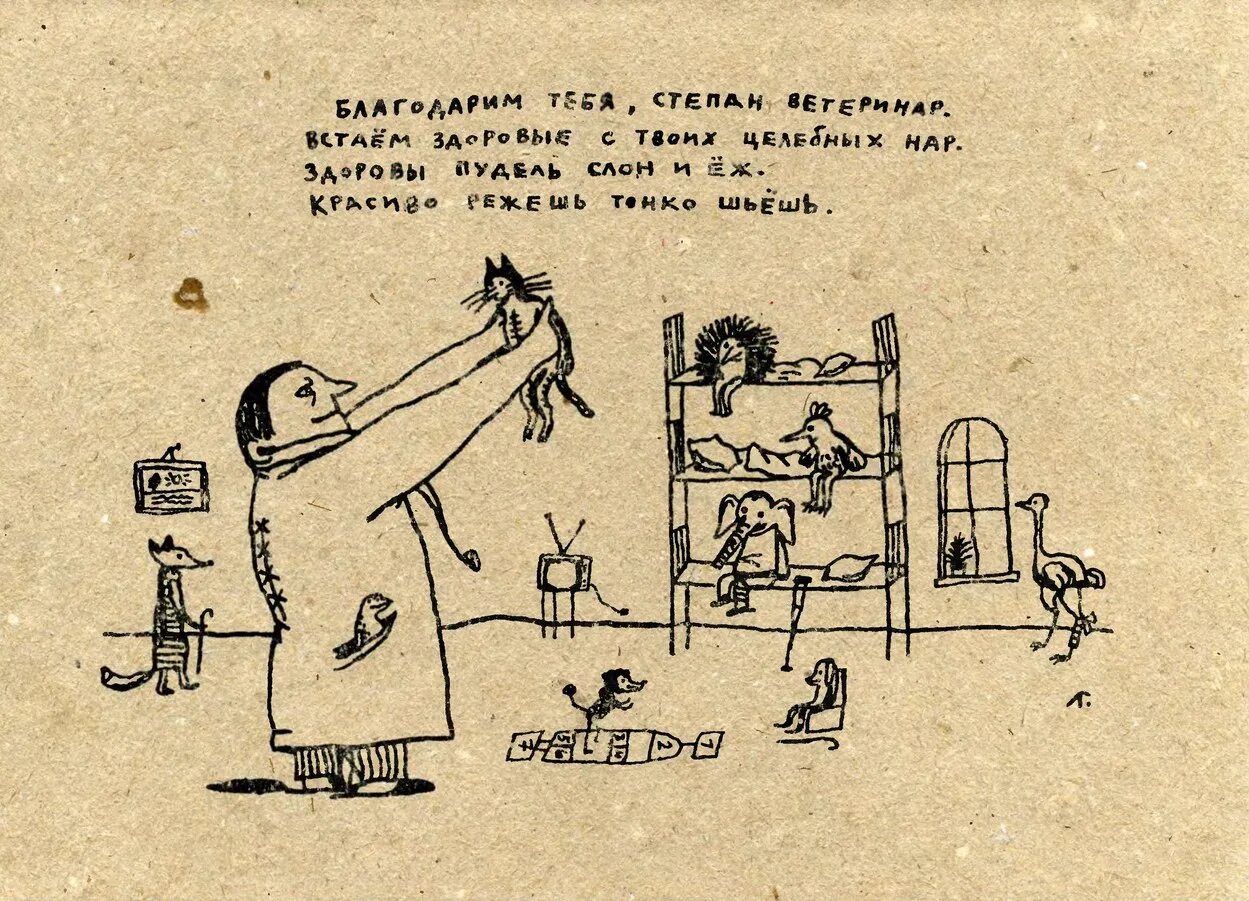 БЛАГОДАРИМ ТЕБЯ, СТЕПАН ВЕТЕРИНАР.
ВСТАЁМ ЗДОРОВЫЕ С ТВОИХ ЦЕЛЕБНЫХ НАР.
ЗДОРОВЫ ПУДЕЛЬ СЛОН И ЁЖ.
КРАСИВО РЕЖЕШЬ ТОНКО ШЬЁШЬ.